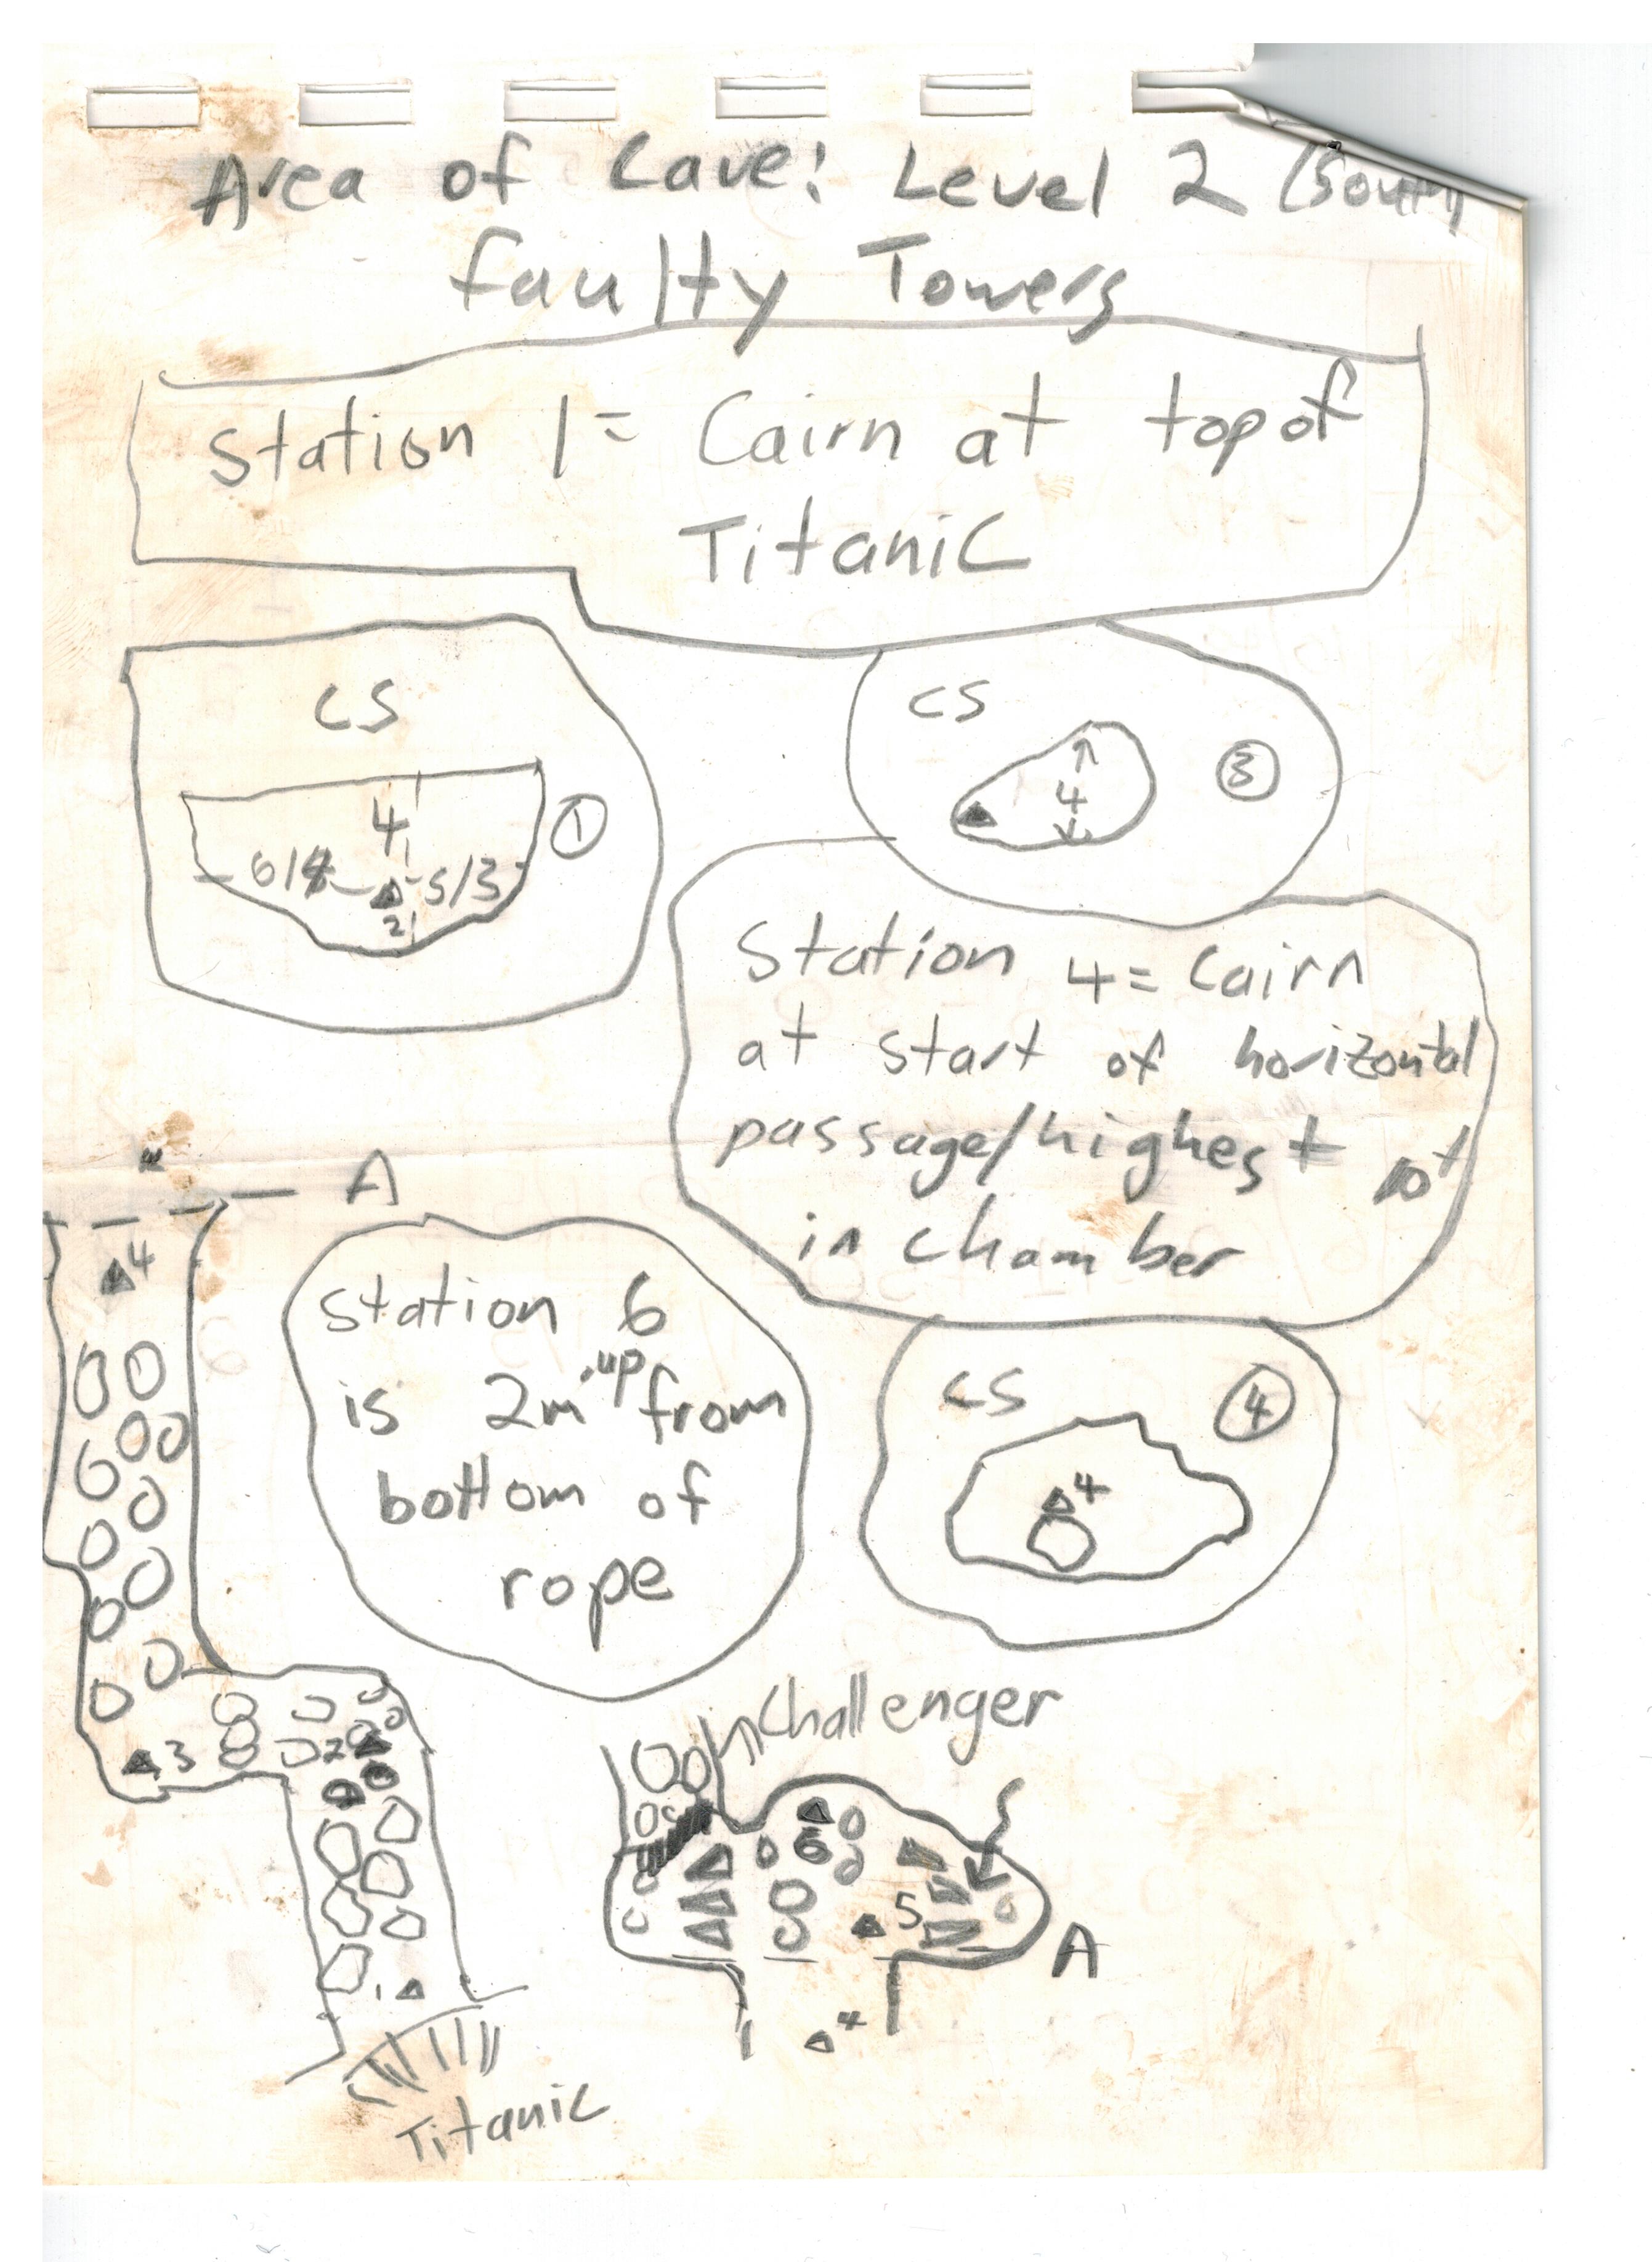 Area of Cave: Level 2 (South)
Faulty Towers
Station 1 = Cairn at top of
Titanic
CS
4
6/ 5/3
2
1
CS
4
3
Station 4 = Cairn
at start of horizontal
passage/highest
in chamber
A
4
Station 6
is 2m up from
bottom of
rope
CS
4
4
3
2
1
Titanic
Challenger
6
5
A
4